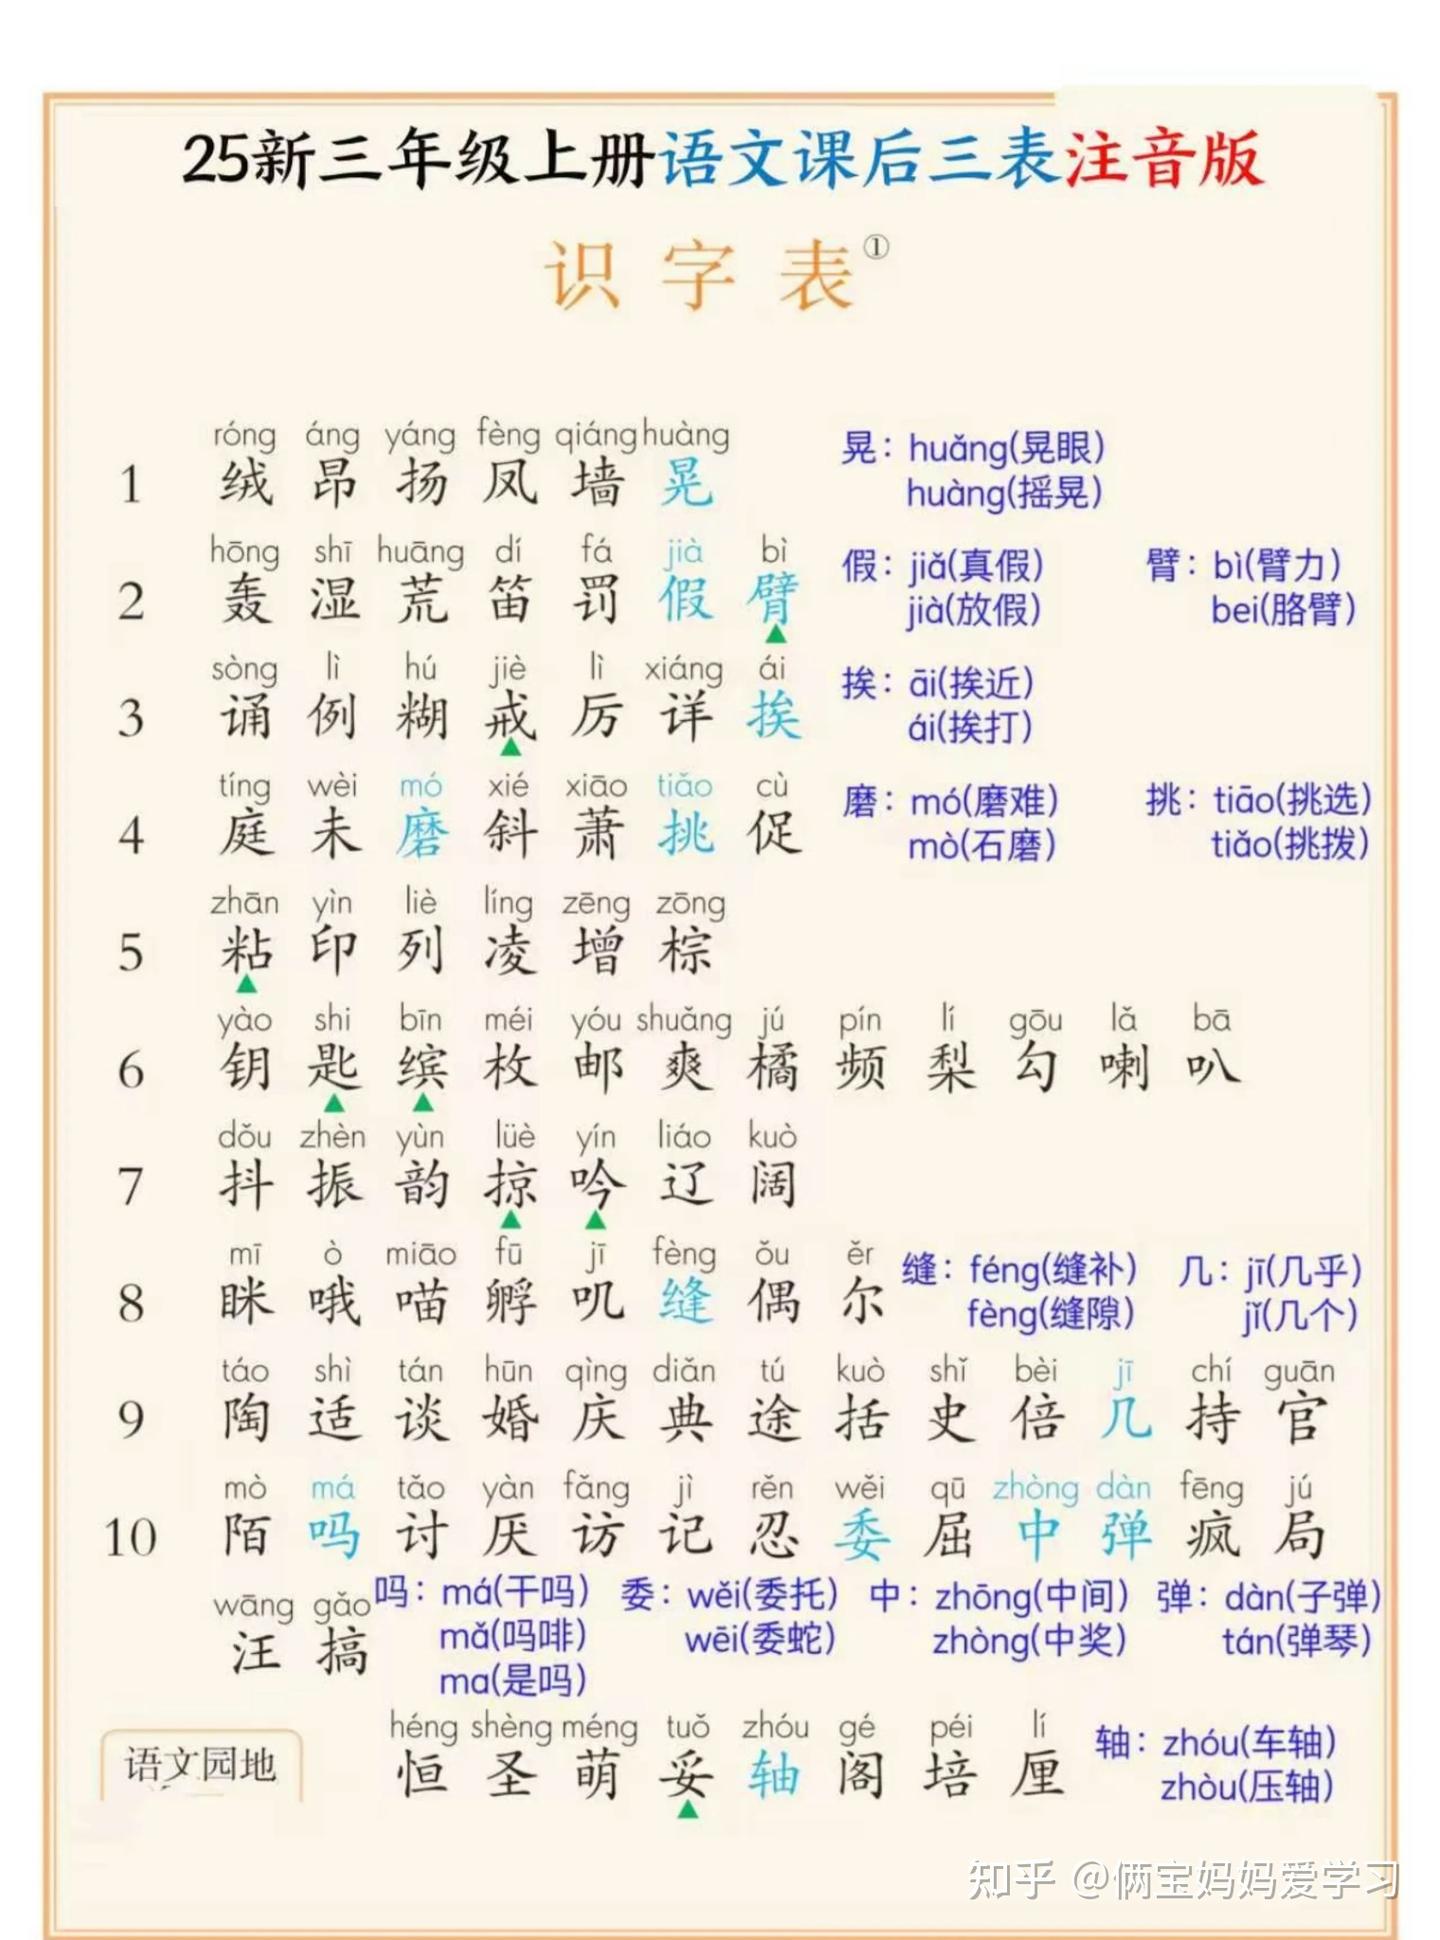 25新三年级上册语文课后三表注音版
识字表①
róng áng yáng fèng qiáng huàng
1 绒 昂 扬 凤 墙 晃
晃：huǎng(晃眼)
huàng(摇晃)
hōng shī huāng dí fá jià bì
2 轰 湿 荒 笛 罚 假 臂
假：jiǎ(真假) 臂：bì(臂力)
jià(放假) bei(胳臂)
sòng lì hú jiè lì xiáng ái
3 诵 例 糊 戒 厉 详 挨
挨：āi(挨近)
ái(挨打)
tíng wèi mó xié xiāo tiǎo cù
4 庭 未 磨 斜 萧 挑 促
磨：mó(磨难) 挑：tiāo(挑选)
mò(石磨) tiǎo(挑拨)
zhān yìn liè líng zēng zōng
5 粘 印 列 凌 增 棕
yào shi bīn méi yóu shuǎng jú pín lí gōu lǎ bā
6 钥 匙 缤 枚 邮 爽 橘 频 梨 勾 喇 叭
dǒu zhèn yùn lüè yín liáo kuò
7 抖 振 韵 掠 吟 辽 阔
mī ò miāo fū jī fèng ǒu ěr
8 眯 哦 喵 孵 叽 缝 偶 尔
缝：féng(缝补) 几：jī(几乎)
fèng(缝隙) jǐ(几个)
táo shì tán hūn qìng diǎn tú kuò shǐ bèi jī chí guān
9 陶 适 谈 婚 庆 典 途 括 史 倍 几 持 官
mò má tǎo yàn fǎng jì rěn wěi qū zhòng dàn fēng jú
10 陌 吗 讨 厌 访 记 忍 委 屈 中 弹 疯 局
wāng gǎo
汪 搞
吗：má(干吗) 委：wěi(委托) 中：zhōng(中间) 弹：dàn(子弹)
mǎ(吗啡) wēi(委蛇) zhòng(中奖) tán(弹琴)
ma(是吗)
héng shèng méng tuǒ zhóu gé péi lí
语文园地 恒 圣 萌 妥 轴 阁 培 厘
轴：zhóu(车轴)
zhòu(压轴)
知乎 @俩宝妈妈爱学习